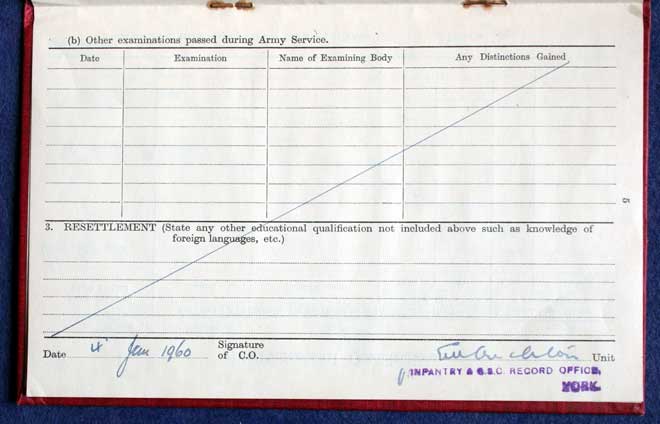 (b) Other examinations passed during Army Service.
Date Examination Name of Examining Body Any Distinctions Gained
5
3. RESETTLEMENT (State any other educational qualification not included above such as knowledge of
foreign languages, etc.)
Date 4 Jan 1960 Signature of C.O. Unit
INFANTRY & G.S.C. RECORD OFFICE,
YORK.